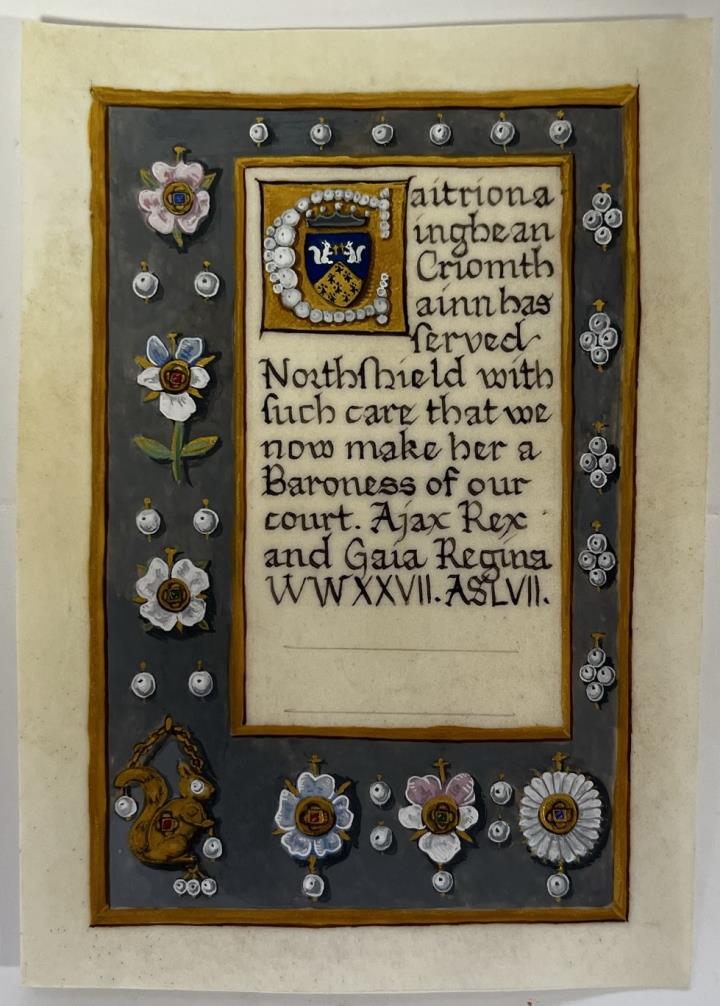 Caitriona
inghean
Criomth
ainn has
ſerved
Northſhield with
ſuch care that we
now make her a
Baroness of our
court. Ajax Rex
and Gaia Regina
WW XXVII. AS LVII.